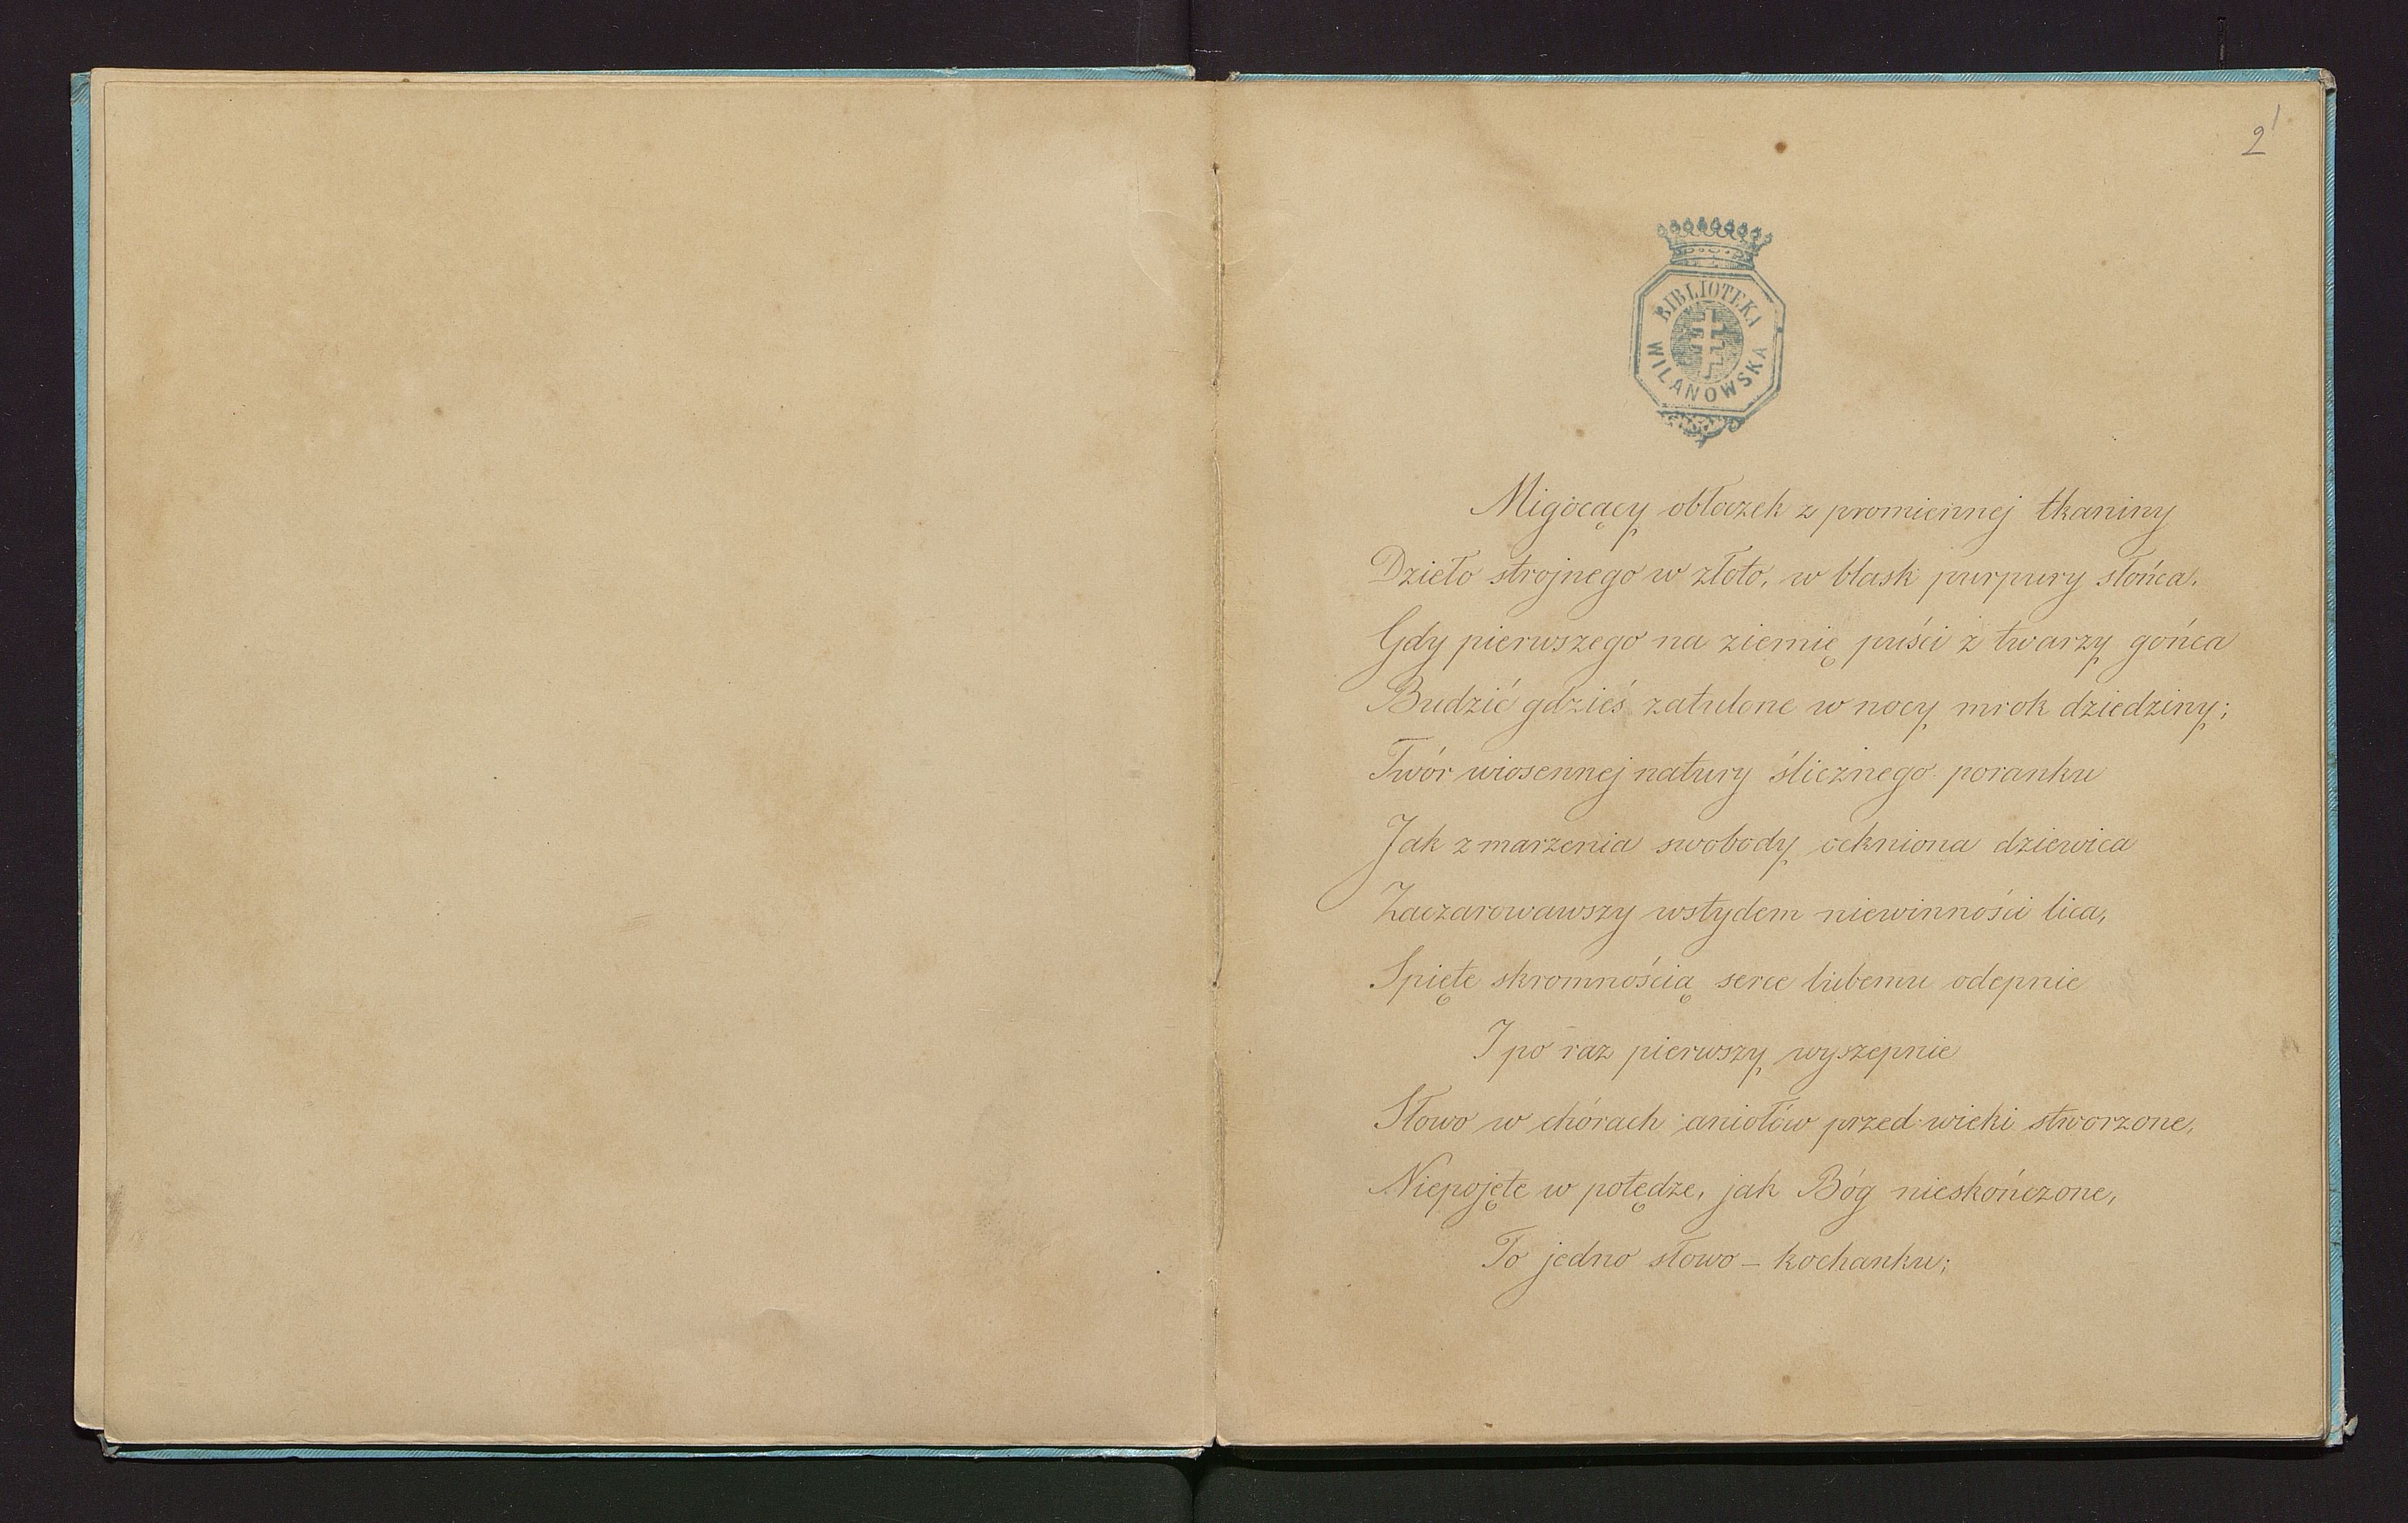 2 1
BIBLIOTEKA
WILANOWSKA
Migocący obłoczek z promiennej tkaniny
Dzieło strojnego w złoto, w blask purpury słońca,
Gdy pierwszego na ziemię puści z twarzy gońca
Budzić gdzieś zatulone w nocy mrok dziedziny;
Twór wiosennej natury ślicznego poranku
Jak z marzenia swobody ockniona dziewica
Zaczarowawszy wstydem niewinności lica,
Spięte skromnością serce lubemu odepnie
I po raz pierwszy wyszepnie
Słowo w chórach aniołów przed wieki stworzone,
Niepojęte w potędze, jak Bóg nieskończone,
To jedno słowo – kochanku;